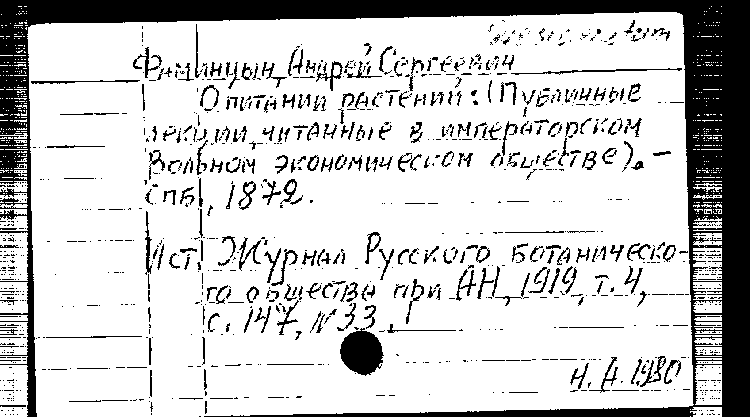 Фаминцын, Андрей Сергеевич
О питании растений: (Публичные
лекции, читанные в императорском
Вольном экономическом обществе). —
СПБ, 1872.
Ист. Журнал Русского ботаническо-
го общества при АН, 1919, т. 4,
с. 147, N 33.
Н. А. 1980